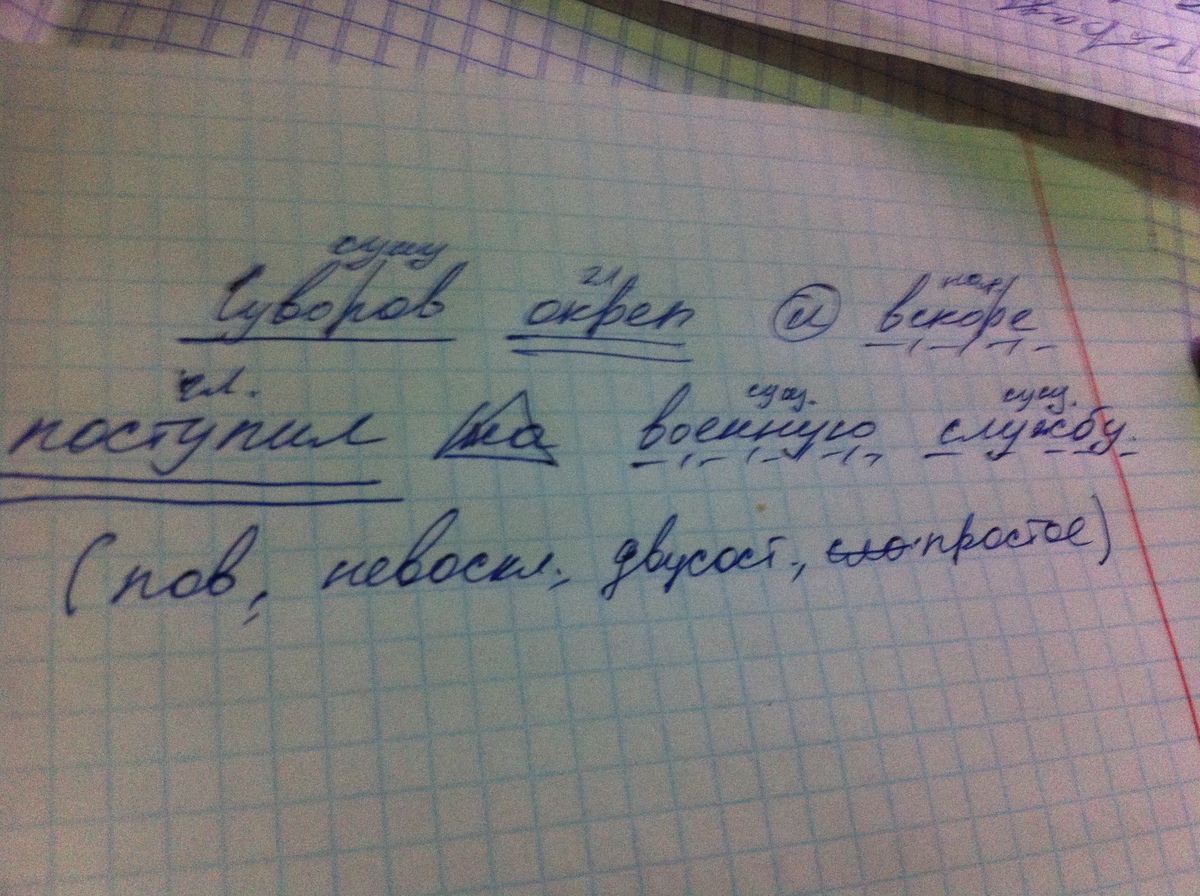 сущ
Суворов окреп и вскоре
гл нар
гл. сущ. сущ.
поступил на военную службу.
(пов, невоскл., двусост., простое)